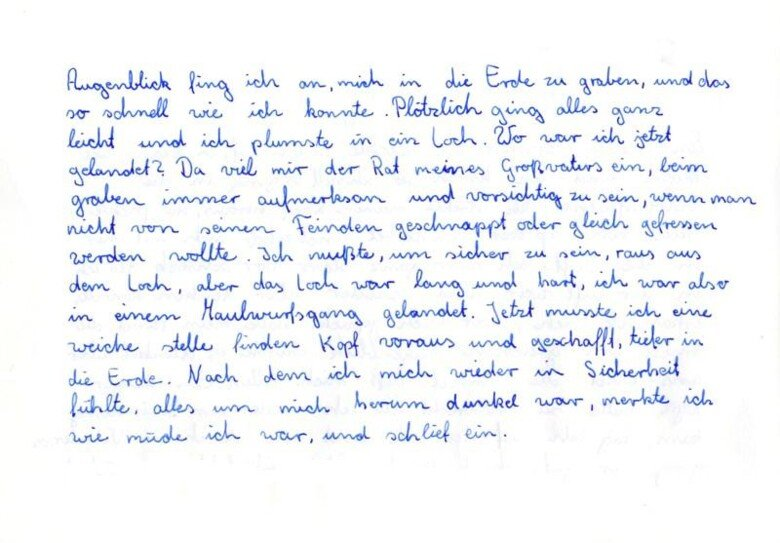 Augenblick fing ich an, mich in die Erde zu graben, und das
so schnell wie ich konnte. Plötzlich ging alles ganz
leicht und ich plumste in ein Loch. Wo war ich jetzt
gelandet? Da viel mir der Rat meines Großvaters ein, beim
graben immer aufmerksam und vorsichtig zu sein, wenn man
nicht von seinen Feinden geschnappt oder gleich gefressen
werden wollte. Ich mußte, um sicher zu sein, raus aus
dem Loch, aber das Loch war lang und hart, ich war also
in einem Maulwurfsgang gelandet. Jetzt musste ich eine
weiche stelle finden Kopf voraus und geschafft, tiefer in
die Erde. Nach dem ich mich wieder in Sicherheit
fühlte, alles um mich herum dunkel war, merkte ich
wie müde ich war, und schlief ein.